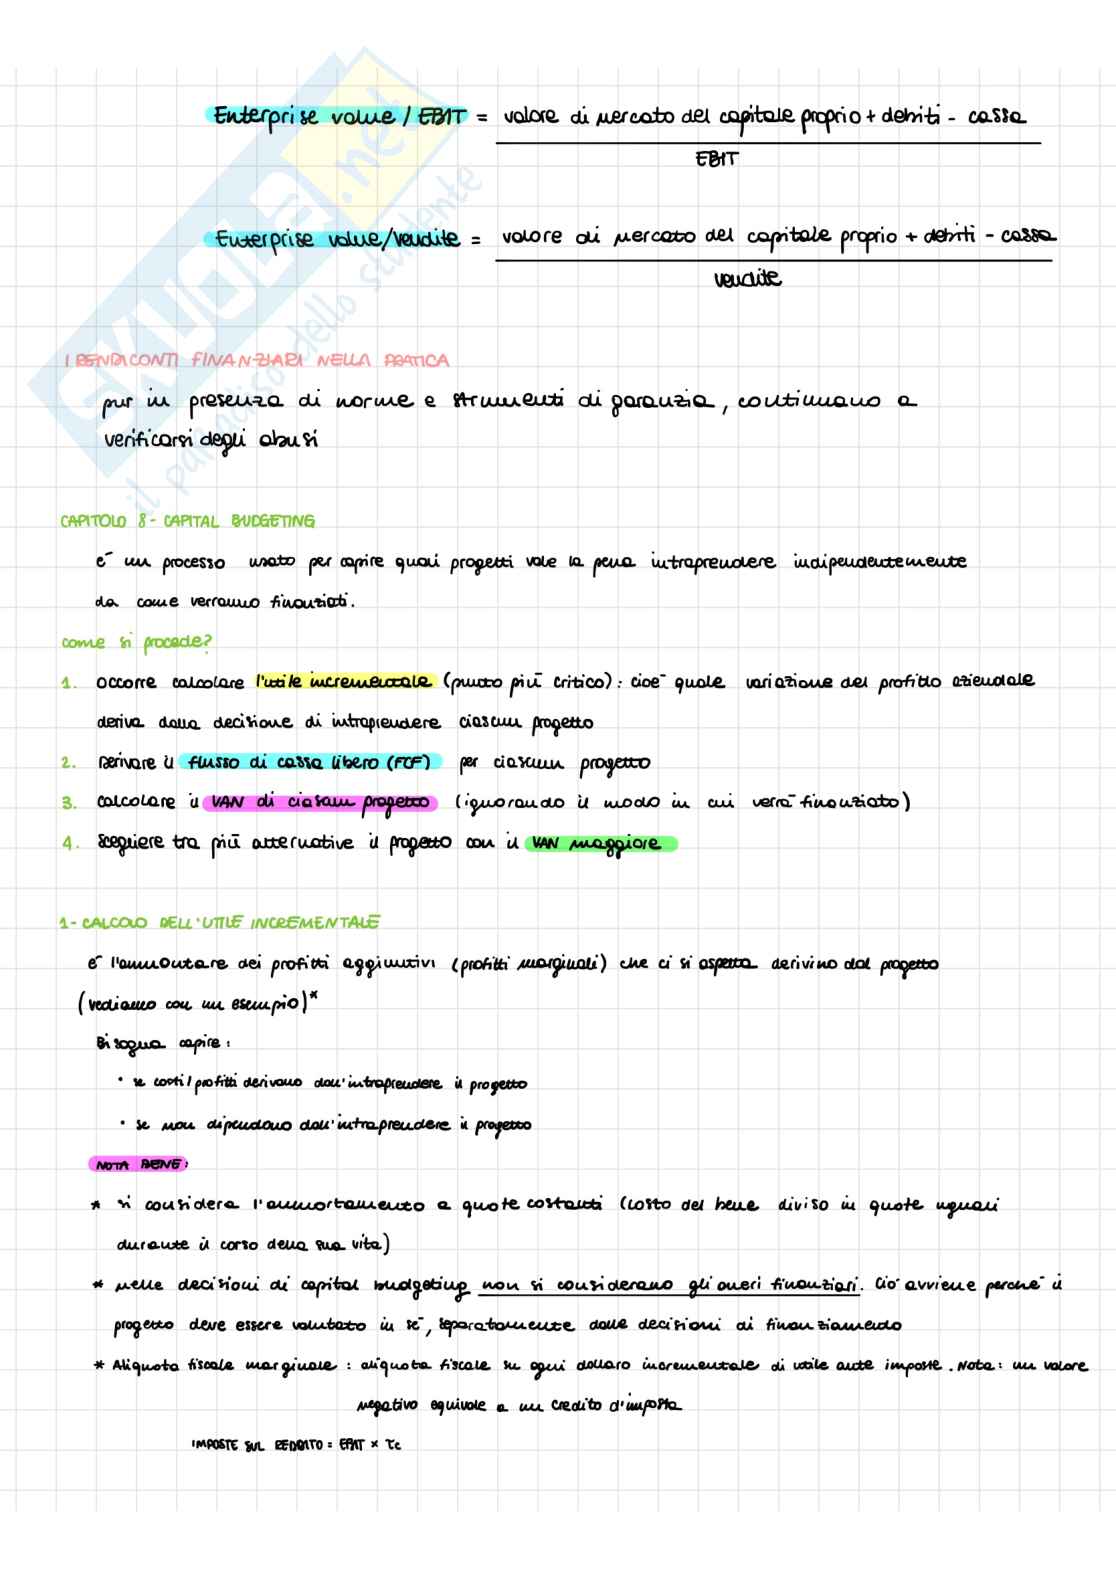 Enterprise value / EBIT = valore di mercato del capitale proprio + debiti - cassa
EBIT
Enterprise value/vendite = valore di mercato del capitale proprio + debiti - cassa
vendite
SKUOLA.net
il paradiso dello studente
I RENDICONTI FINANZIARI NELLA PRATICA
pur in presenza di norme e strumenti di garanzia, continuano a
verificarsi degli abusi
CAPITOLO 8 - CAPITAL BUDGETING
è un processo usato per capire quali progetti vale la pena intraprendere indipendentemente
da come verranno finanziati.
come si procede?
1. occorre calcolare l'utile incrementale (punto più critico): cioè quale variazione del profitto aziendale
deriva dalla decisione di intraprendere ciascun progetto
2. Derivare il flusso di cassa libero (FCF) per ciascun progetto
3. calcolare il VAN di ciascun progetto (ignorando il modo in cui verrà finanziato)
4. Scegliere tra più alternative il progetto con il VAN maggiore
1- CALCOLO DELL'UTILE INCREMENTALE
è l'ammontare dei profitti aggiuntivi (profitti marginali) che ci si aspetta derivino dal progetto
(vediamo con un esempio)*
Bisogna capire:
• se costi/profitti derivano dall'intraprendere il progetto
• se non dipendono dall'intraprendere il progetto
NOTA BENE:
* si considera l'ammortamento a quote costanti (costo del bene diviso in quote uguali
durante il corso della sua vita)
* nelle decisioni di capital budgeting non si considerano gli oneri finanziari. Ciò avviene perchè il
progetto deve essere valutato in sè, separatamente dalle decisioni di finanziamento
* Aliquota fiscale marginale: aliquota fiscale su ogni dollaro incrementale di utile ante imposte. Nota: un valore
negativo equivale a un credito d'imposta
IMPOSTE SUL REDDITO = EBIT × τc